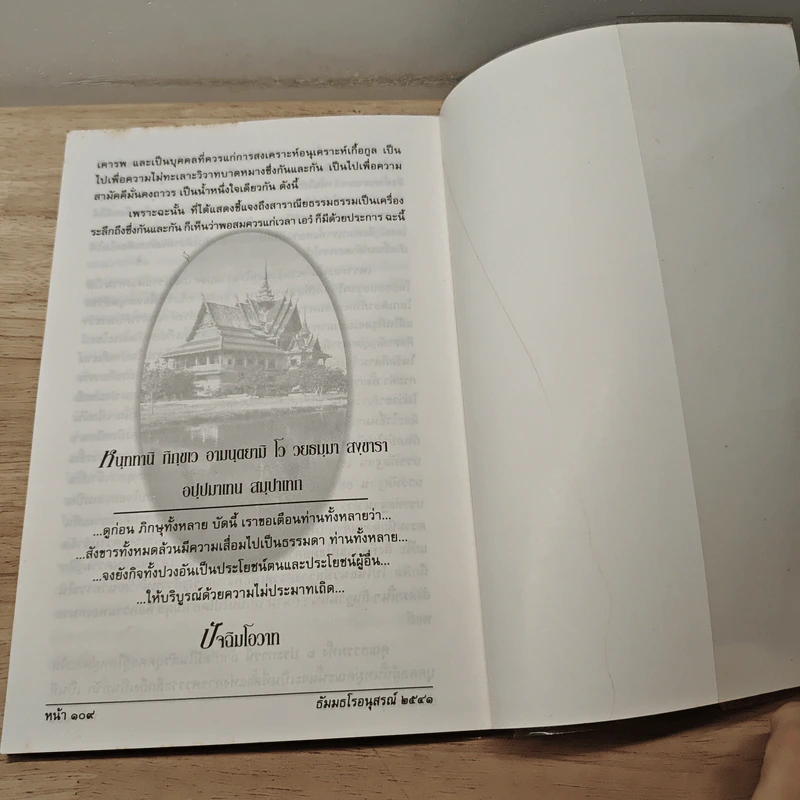 เคารพ และเป็นบุคคลที่ควรแก่การสงเคราะห์อนุเคราะห์เกื้อกูล เป็น
ไปเพื่อความไม่ทะเลาะวิวาทบาดหมางซึ่งกันและกัน เป็นไปเพื่อความ
สามัคคีมั่นคงถาวร เป็นน้ำหนึ่งใจเดียวกัน ดังนี้
เพราะฉะนั้น ที่ได้แสดงชี้แจงถึงสาราณียธรรมธรรมเป็นเครื่อง
ระลึกถึงซึ่งกันและกัน ก็เห็นว่าพอสมควรแก่เวลา เอวํ ก็มีด้วยประการ ฉะนี้
หนฺททานิ ภิกฺขเว อามนฺตยามิ โว วยธมฺมา สงฺขารา
อปฺปมาเทน สมฺปาเทถ
...ดูก่อน ภิกษุทั้งหลาย บัดนี้ เราขอเตือนท่านทั้งหลายว่า...
...สังขารทั้งหมดล้วนมีความเสื่อมไปเป็นธรรมดา ท่านทั้งหลาย...
...จงยังกิจทั้งปวงอันเป็นประโยชน์ตนและประโยชน์ผู้อื่น...
...ให้บริบูรณ์ด้วยความไม่ประมาทเถิด...
ปัจฉิมโอวาท
หน้า ๑๐๙ ธัมมธโรอนุสรณ์ ๒๕๔๑